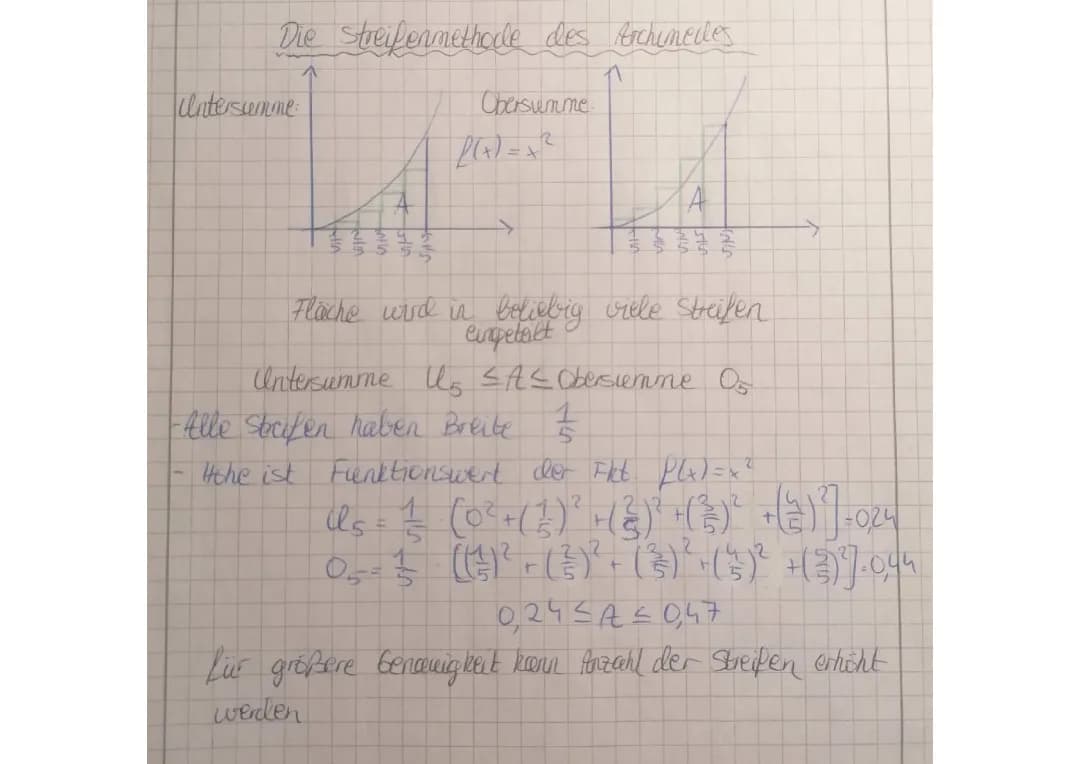 Die Streifenmethode des Archimedes
Untersumme:
Obersumme:
f(x) = x²
A
A
1/5 2/5 3/5 4/5 5/5
1/5 2/5 3/5 4/5 5/5
Fläche wird in beliebig viele Streifen
eingeteilt
Untersumme U₅ ≤ A ≤ Obersumme O₅
- Alle Streifen haben Breite 1/5
- Höhe ist Funktionswert der Fkt f(x) = x²
U₅ = 1/5 [0² + (1/5)² + (2/5)² + (3/5)² + (4/5)²] = 0,24
O₅ = 1/5 [(1/5)² + (2/5)² + (3/5)² + (4/5)² + (5/5)²] = 0,44
0,24 ≤ A ≤ 0,47
für größere Genauigkeit kann Anzahl der Streifen erhöht
werden